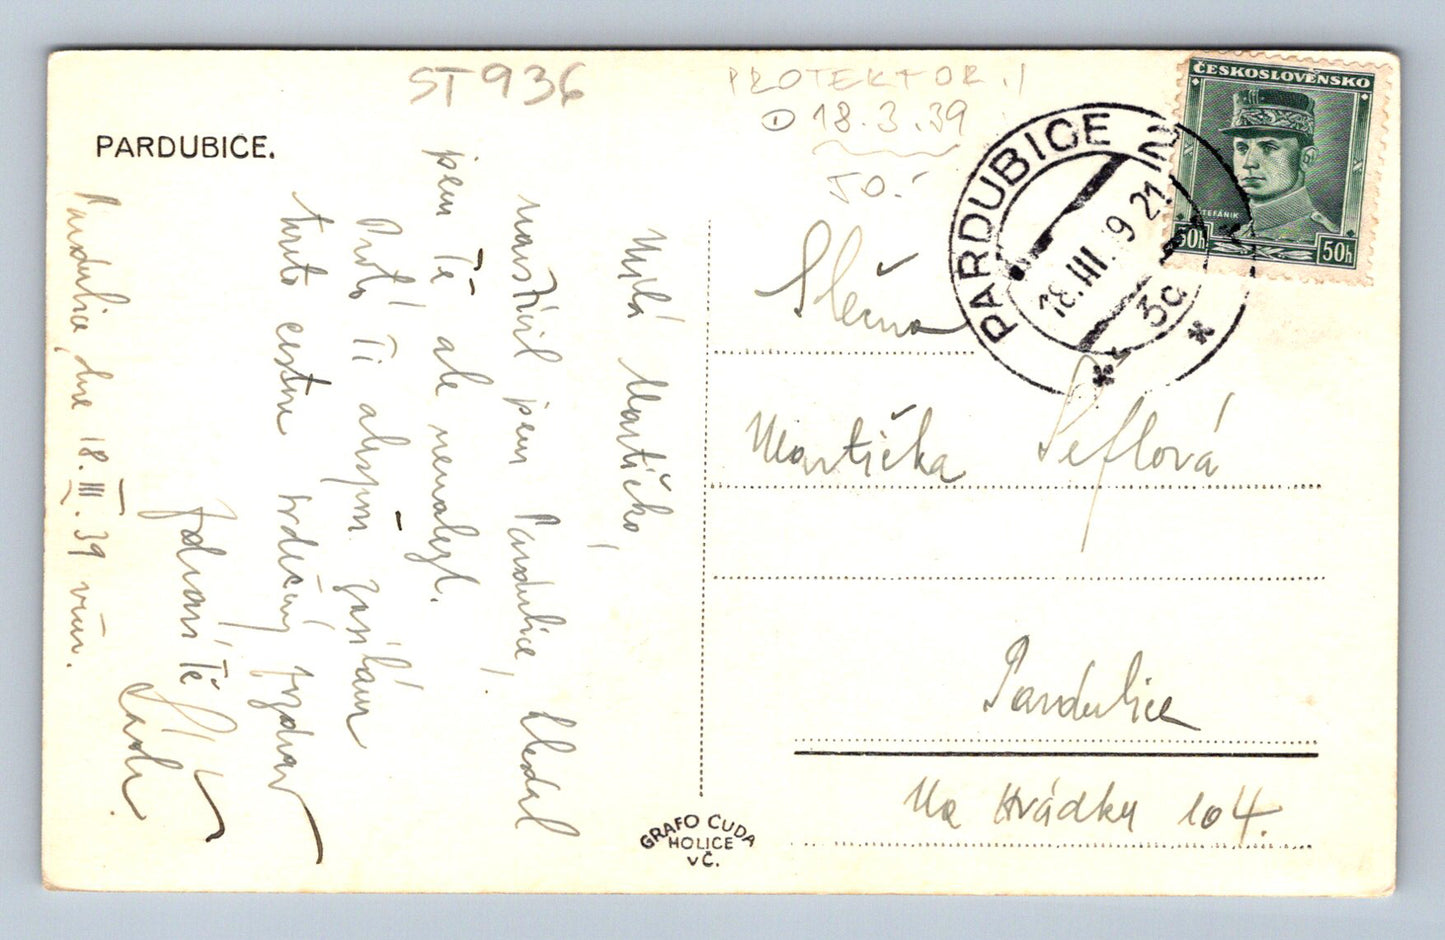 ST 936
PROTEKTOR.!
① 18.3.39
TO.-
PARDUBICE.
ČESKOSLOVENSKO
ŠTEFÁNIK
50h 50h
PARDUBICE 2
18.III.39 21
3a
Milá Martičko,
navštívil jsem Pardubice, hledal
jsem Tě ale nenalezl.
Proto Ti alespoň zasílám
tuto cestou srdečný pozdrav
Zdraví Tě
Pardubice, dne 18.III.39
Slečna
Martička Šeflová
Pardubice
Na Hrádku 104.
GRAFO ČUDA
HOLICE
VČ.